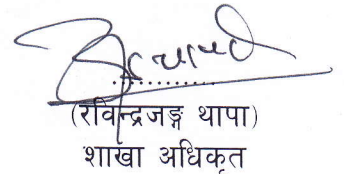 ..............
(रविन्द्रजङ्ग थापा)
शाखा अधिकृत